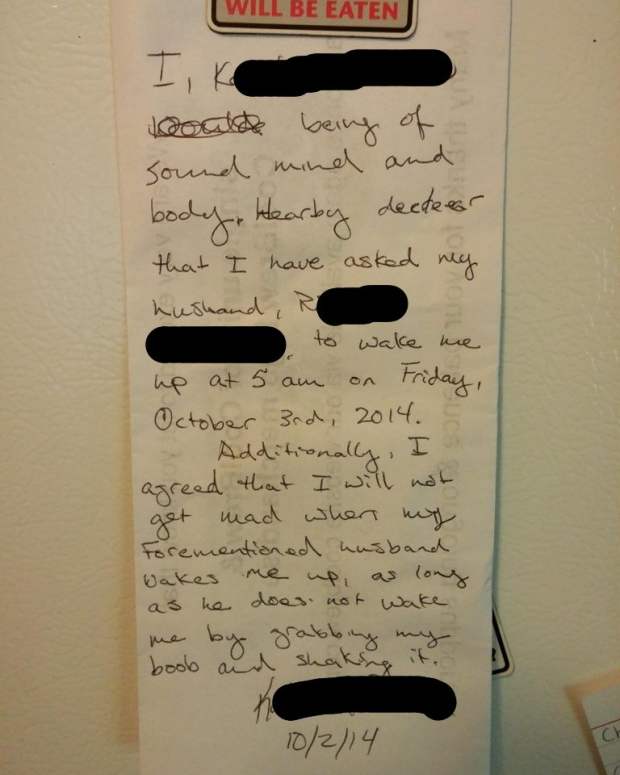 WILL BE EATEN
I, K
being of
sound mind and
body, Hearby
that I have asked my
husband, R
, to wake me
up at 5 am on Friday,
October 3rd, 2014.
Additionally, I
agreed that I will not
get mad when my
Forementioned husband
wakes me up, as long
as he does not wake
me by grabbing my
boob and shaking it.
K
10/2/14